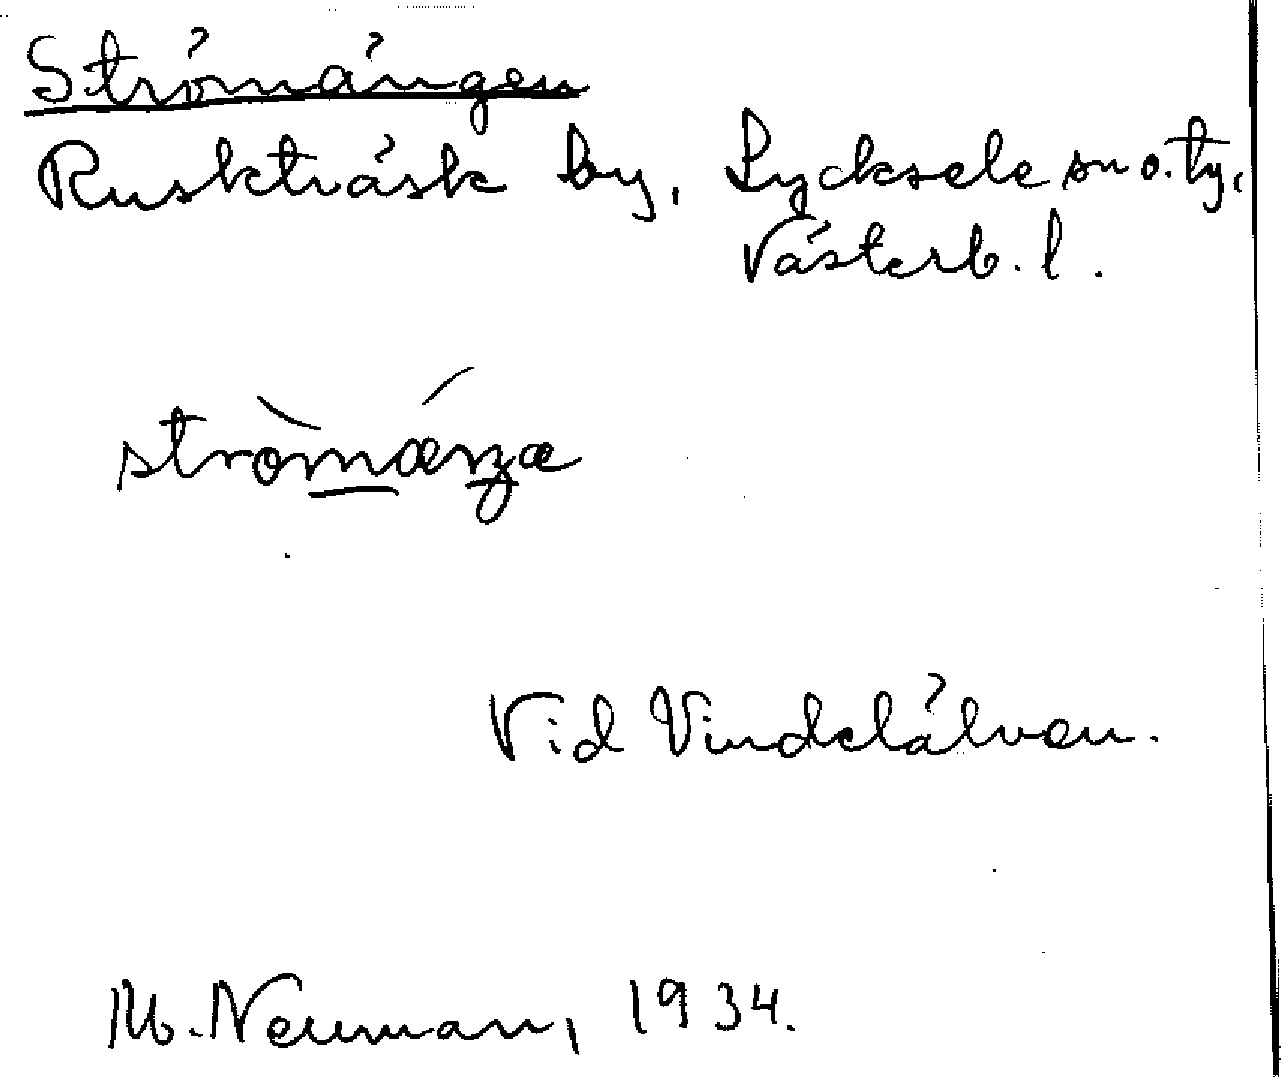 Strömängen
Ruskträsk by, Lycksele sn o. tg,
Västerb. l.
Vid Vindelälven.
M. Neuman, 1934.